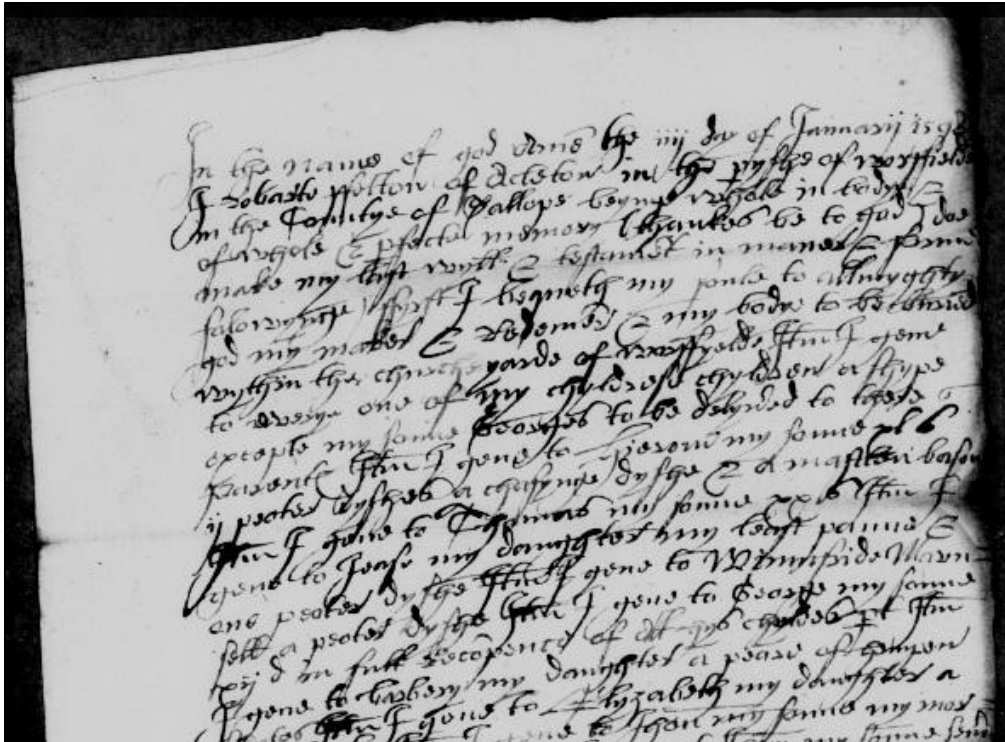 In the name of god Ame the iiij day of Januarij 159
I Robarte ffelton of Acleton in the pyshe of worffielde
in the Countye of Sallope beynge whole in bodye &
of whole & pfecte memory thankes be to god I doe
make my last wyll & testamet in maner & forme
folowynge ffyrst I bequeth my soule to allmyghty
god my maker & Redemer & my body to be buried
wythin the churche yarde of worffyelde Itm I geve
to every one of my chyldres chyldren a shype
excepte my sonne Georges to be delyvred to there
parents Itm I geve to my sonne xl s
ij peoter dysshes a chafynge dyshe & a maslen bason
Itm I geve to Thomas my sonne xx s Itm I
geve to Jease my daughter my least panne &
one peoter dyshe Itm I geve to Wennifride Marn=
sell a peoter dyshe Itm I geve to George my sonne
xij d in full recopence of all hys childes pt Itm
I geve to Barbery my daughter a peare of hempen
Itm I geve to Elyzabeth my daughter a
I geve to Jhon my sonne my
my sonne